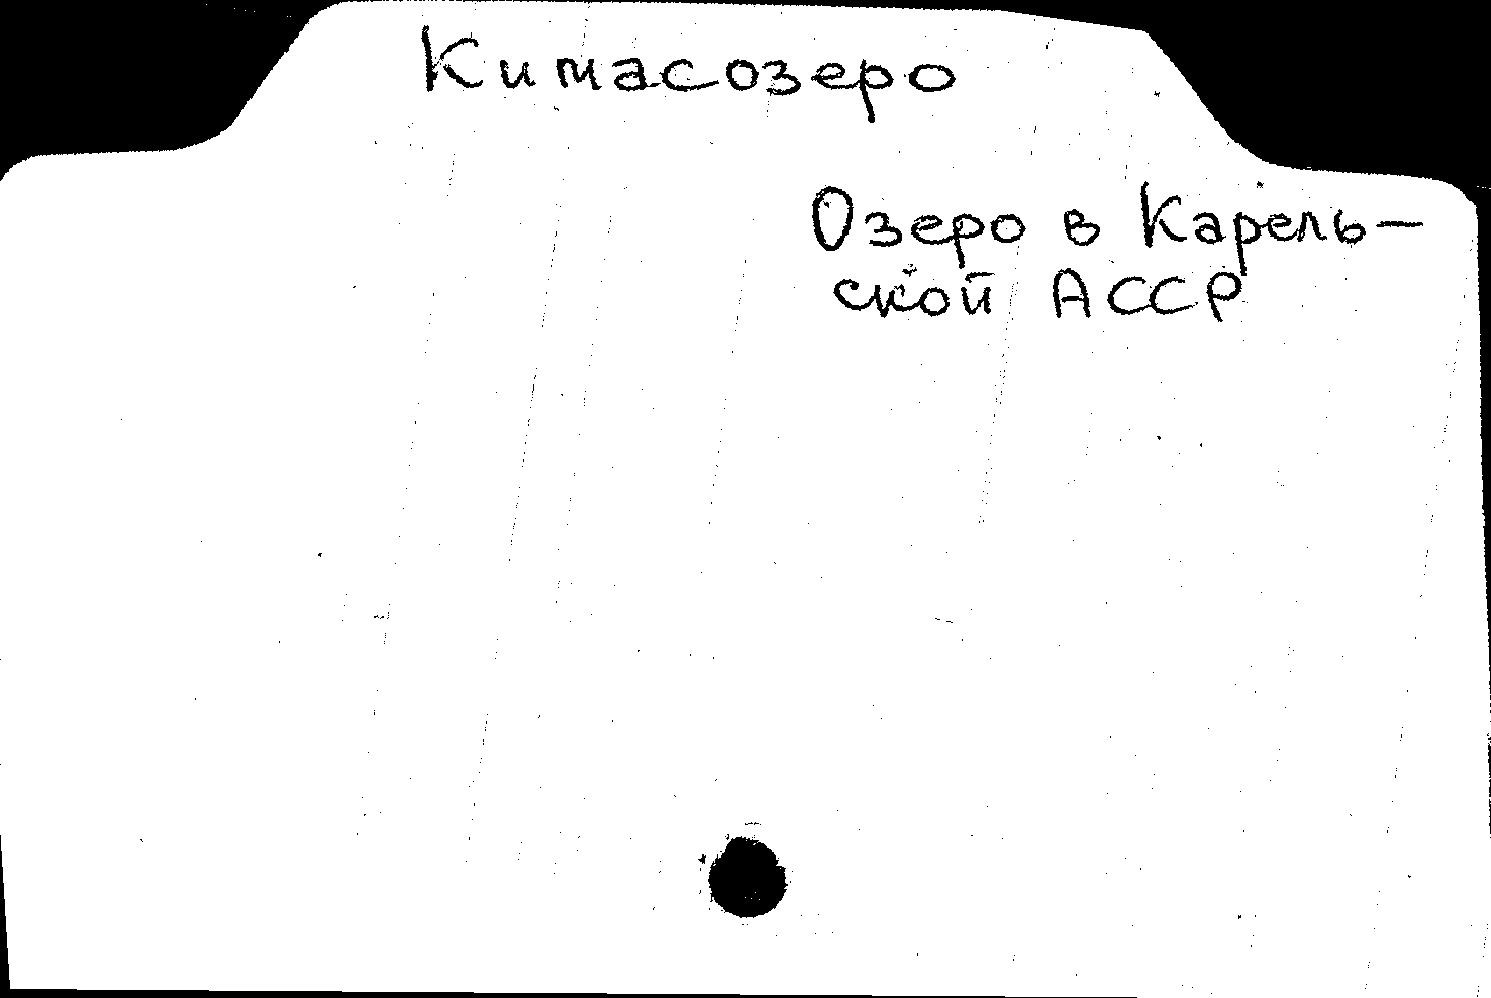 Китасозеро
Озеро в Карель-
ской АССР